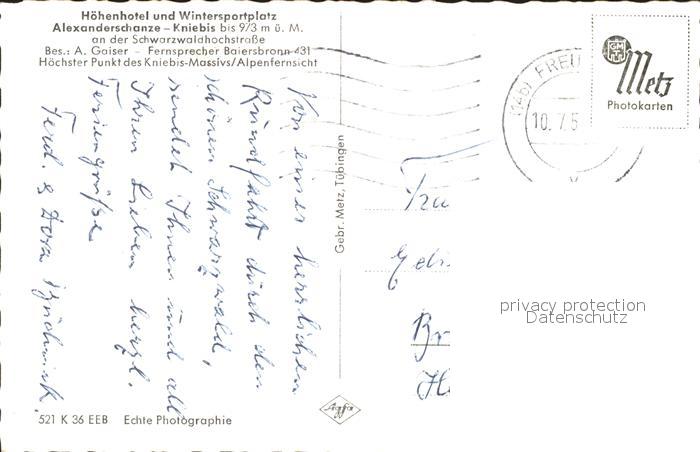 Höhenhotel und Wintersportplatz
Alexanderschanze – Kniebis bis 973 m ü. M.
an der Schwarzwaldhochstraße
Bes.: A. Gaiser – Fernsprecher Baiersbronn 431
Höchster Punkt des Kniebis-Massivs/Alpenfernsicht
Von einer herrlichen
Rundfahrt durch den
schönen Schwarzwald,
sendet Ihnen und all
Ihren Lieben herzl.
Feriengrüße
Ferd. & Dora
Gebr. Metz, Tübingen
FREU
10. 7. 5
GM
Metz
Photokarten
Frau
privacy protection
Datenschutz
Agfa
521 K 36 EEB Echte Photographie